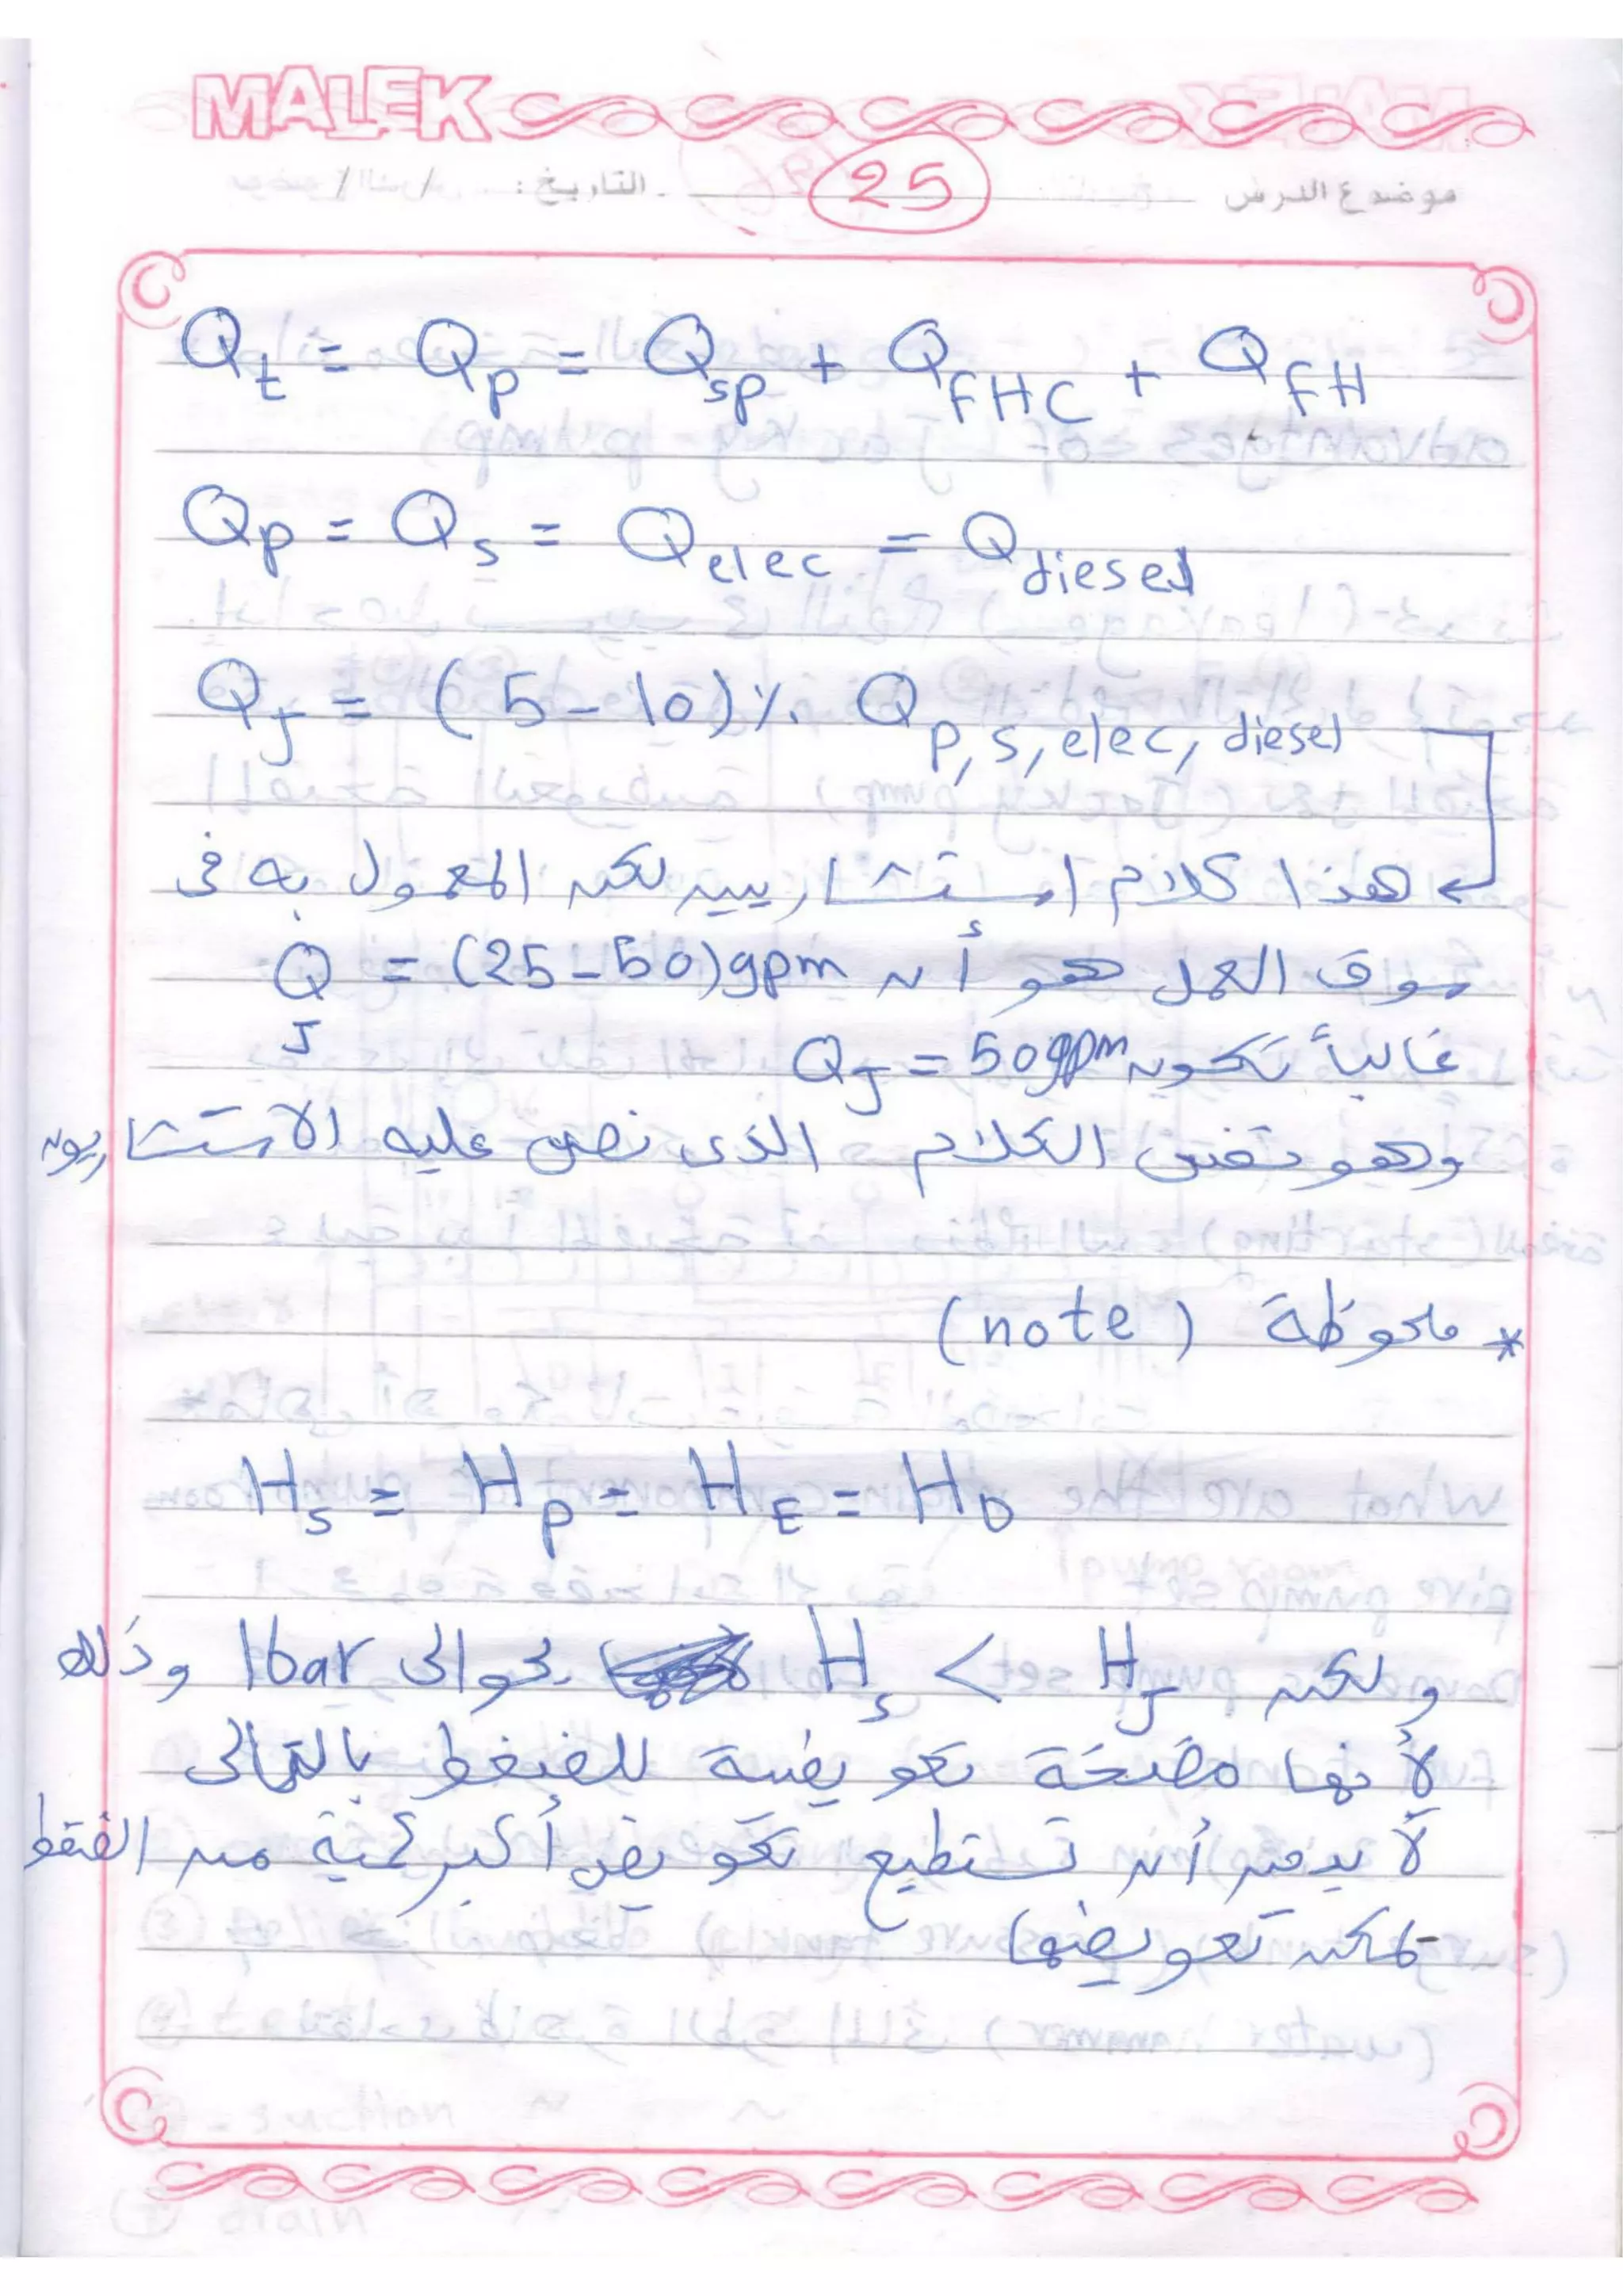 MALEK
موضوع الدرس 25 التاريخ: / /
Qt = Qp = Qsp + QFHC + QFH
Qp = Qs = Qelec = Qdiesel
QJ = (5-10)% Qp,s,elec,diesel
هذا كلام استشاريين لكن المعمول به فى
سوق العمل هو أن QJ = (25-50)gpm
غالباً تكون QJ = 50gpm
وهو نفس الكلام الذى نص عليه الاستشاريون
* ملحوظة (note)
Hs = Hp = HE = HD
ولكن HJ > Hs بحوالى 1bar وذلك
لأنها مضخة تعويضية للضغط بالتالى
لا بد من أن تستطيع تعويض أكبر كمية من الضغط
يمكن تعويضها